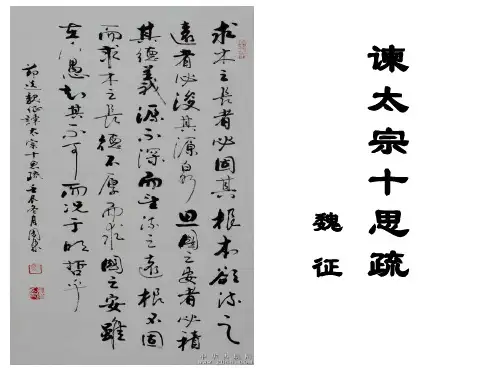 谏太宗十思疏
魏征
求木之長者必固其根本欲流之
遠者必浚其源泉思國之安者必積
其德義源不深而望流之遠根不固
而求木之長德不厚而求國之安雖
在下愚知其不可而况于明哲乎
节选魏征谏太宗十思疏壬辰冬月